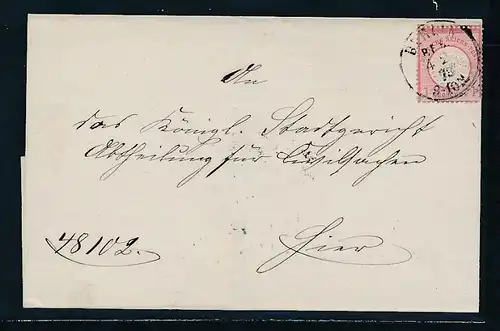 BERLIN
P.E.
4 2
75
8-10V.
An
das Königl. Stadtgericht
Abtheilung für Civilsachen
Hier
48102.